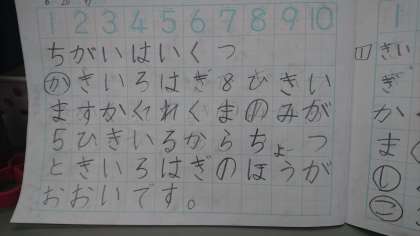 1 2 3 4 5 6 7 8 9 10
ちがいはいくつ
かきいろはぎ8ひきい
ますかくれくまのみが
5ひきいるからちょつ
ときいろはぎのほうが
おおいです。
1
1 きい
ぎ
か
ま